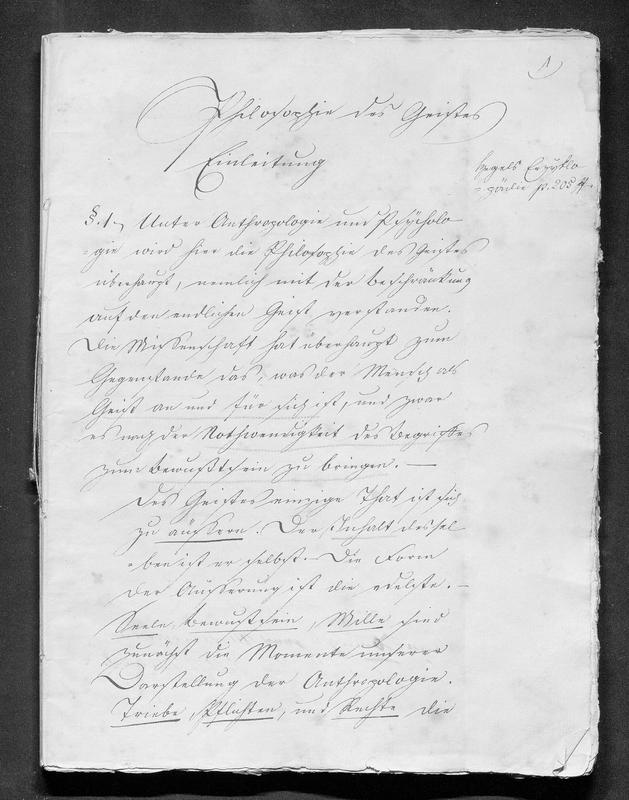 1)
Philosophie des Geistes
Einleitung
Hegels Encyklo
=pädie p. 205 ff.
§. 1. Unter Anthropologie und Psycholo
=gie wird hier die Philosophie des Geistes
überhaupt, nemlich mit der Beschränkung
auf den endlichen Geist verstanden.
Die Wissenschaft hat überhaupt zum
Gegenstande das, was der Mensch als
Geist an und für sich ist, und zwar
es nach der Nothwendigkeit des Begriffes
zum Bewußtsein zu bringen. —
Des Geistes einzige That ist sich
zu äussern. Der Inhalt dessel
=ben ist er selbst. – Die Form
der Äusserung ist die edelste. –
Seele, Bewustsein, Wille sind
zunächst die Momente unserer
Darstellung der Anthropologie.
Triebe, Pflichten, und Rechte die